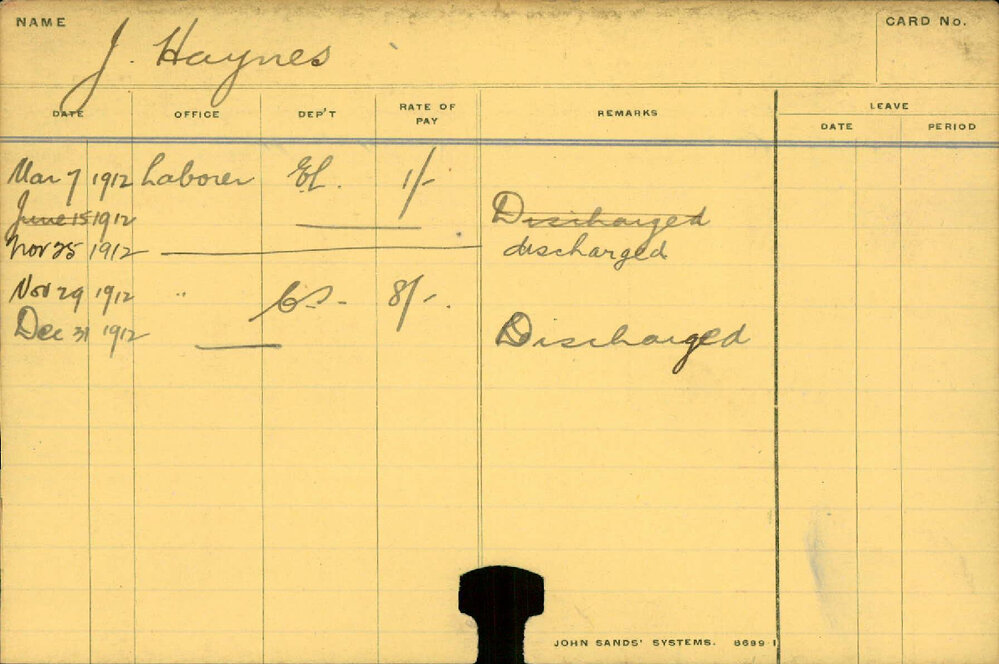 NAME J. Haynes CARD No.
DATE OFFICE DEP'T RATE OF PAY REMARKS LEAVE
DATE PERIOD
Mar 7 1912 Laborer El. 1/-
June 15 1912 Discharged
Nov 25 1912 discharged
Nov 29 1912 " 8/-
Dec 31 1912 Discharged
JOHN SANDS' SYSTEMS. 8699